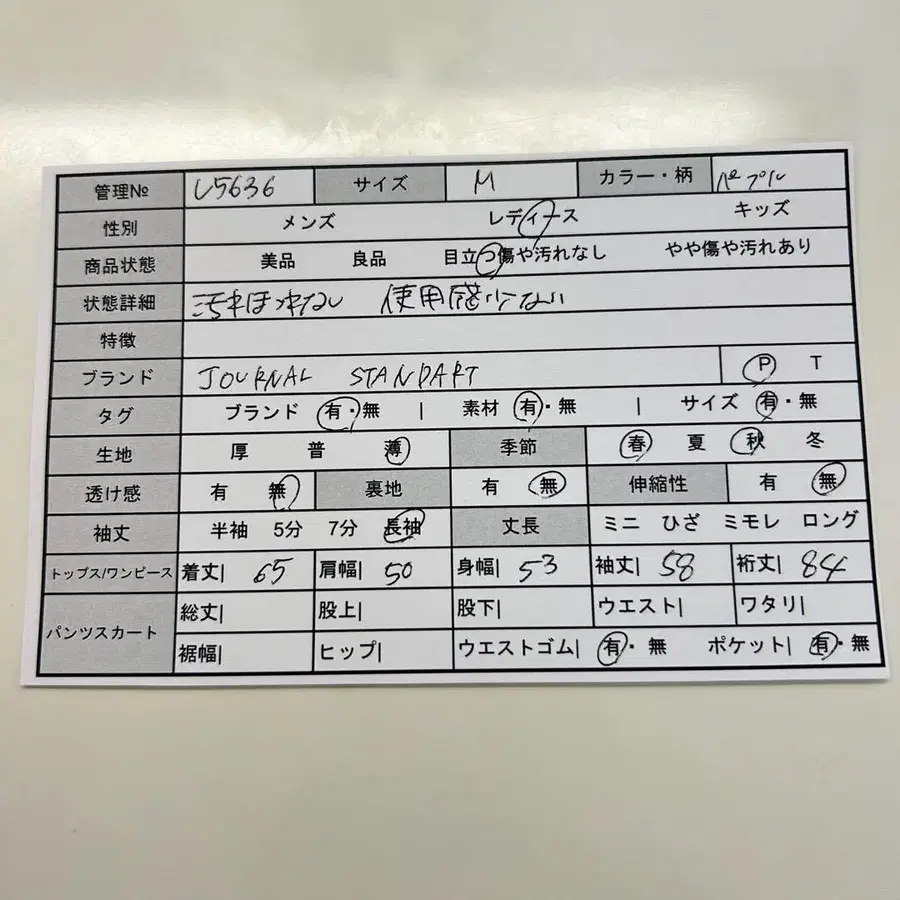 管理№ U5636 サイズ M カラー・柄 パープル
性別 メンズ レディース キッズ
商品状態 美品 良品 目立つ傷や汚れなし やや傷や汚れあり
状態詳細 汚れほつれなし 使用感少ない
特徴
ブランド JOURNAL STANDART P T
タグ ブランド 有・無 | 素材 有・無 | サイズ 有・無
生地 厚 普 薄 季節 春 夏 秋 冬
透け感 有 無 裏地 有 無 伸縮性 有 無
袖丈 半袖 5分 7分 長袖 丈長 ミニ ひざ ミモレ ロング
トップス/ワンピース 着丈| 65 肩幅| 50 身幅| 53 袖丈| 58 裄丈| 84
パンツスカート 総丈| 股上| 股下| ウエスト| ワタリ|
裾幅| ヒップ| ウエストゴム| 有・無 ポケット| 有・無